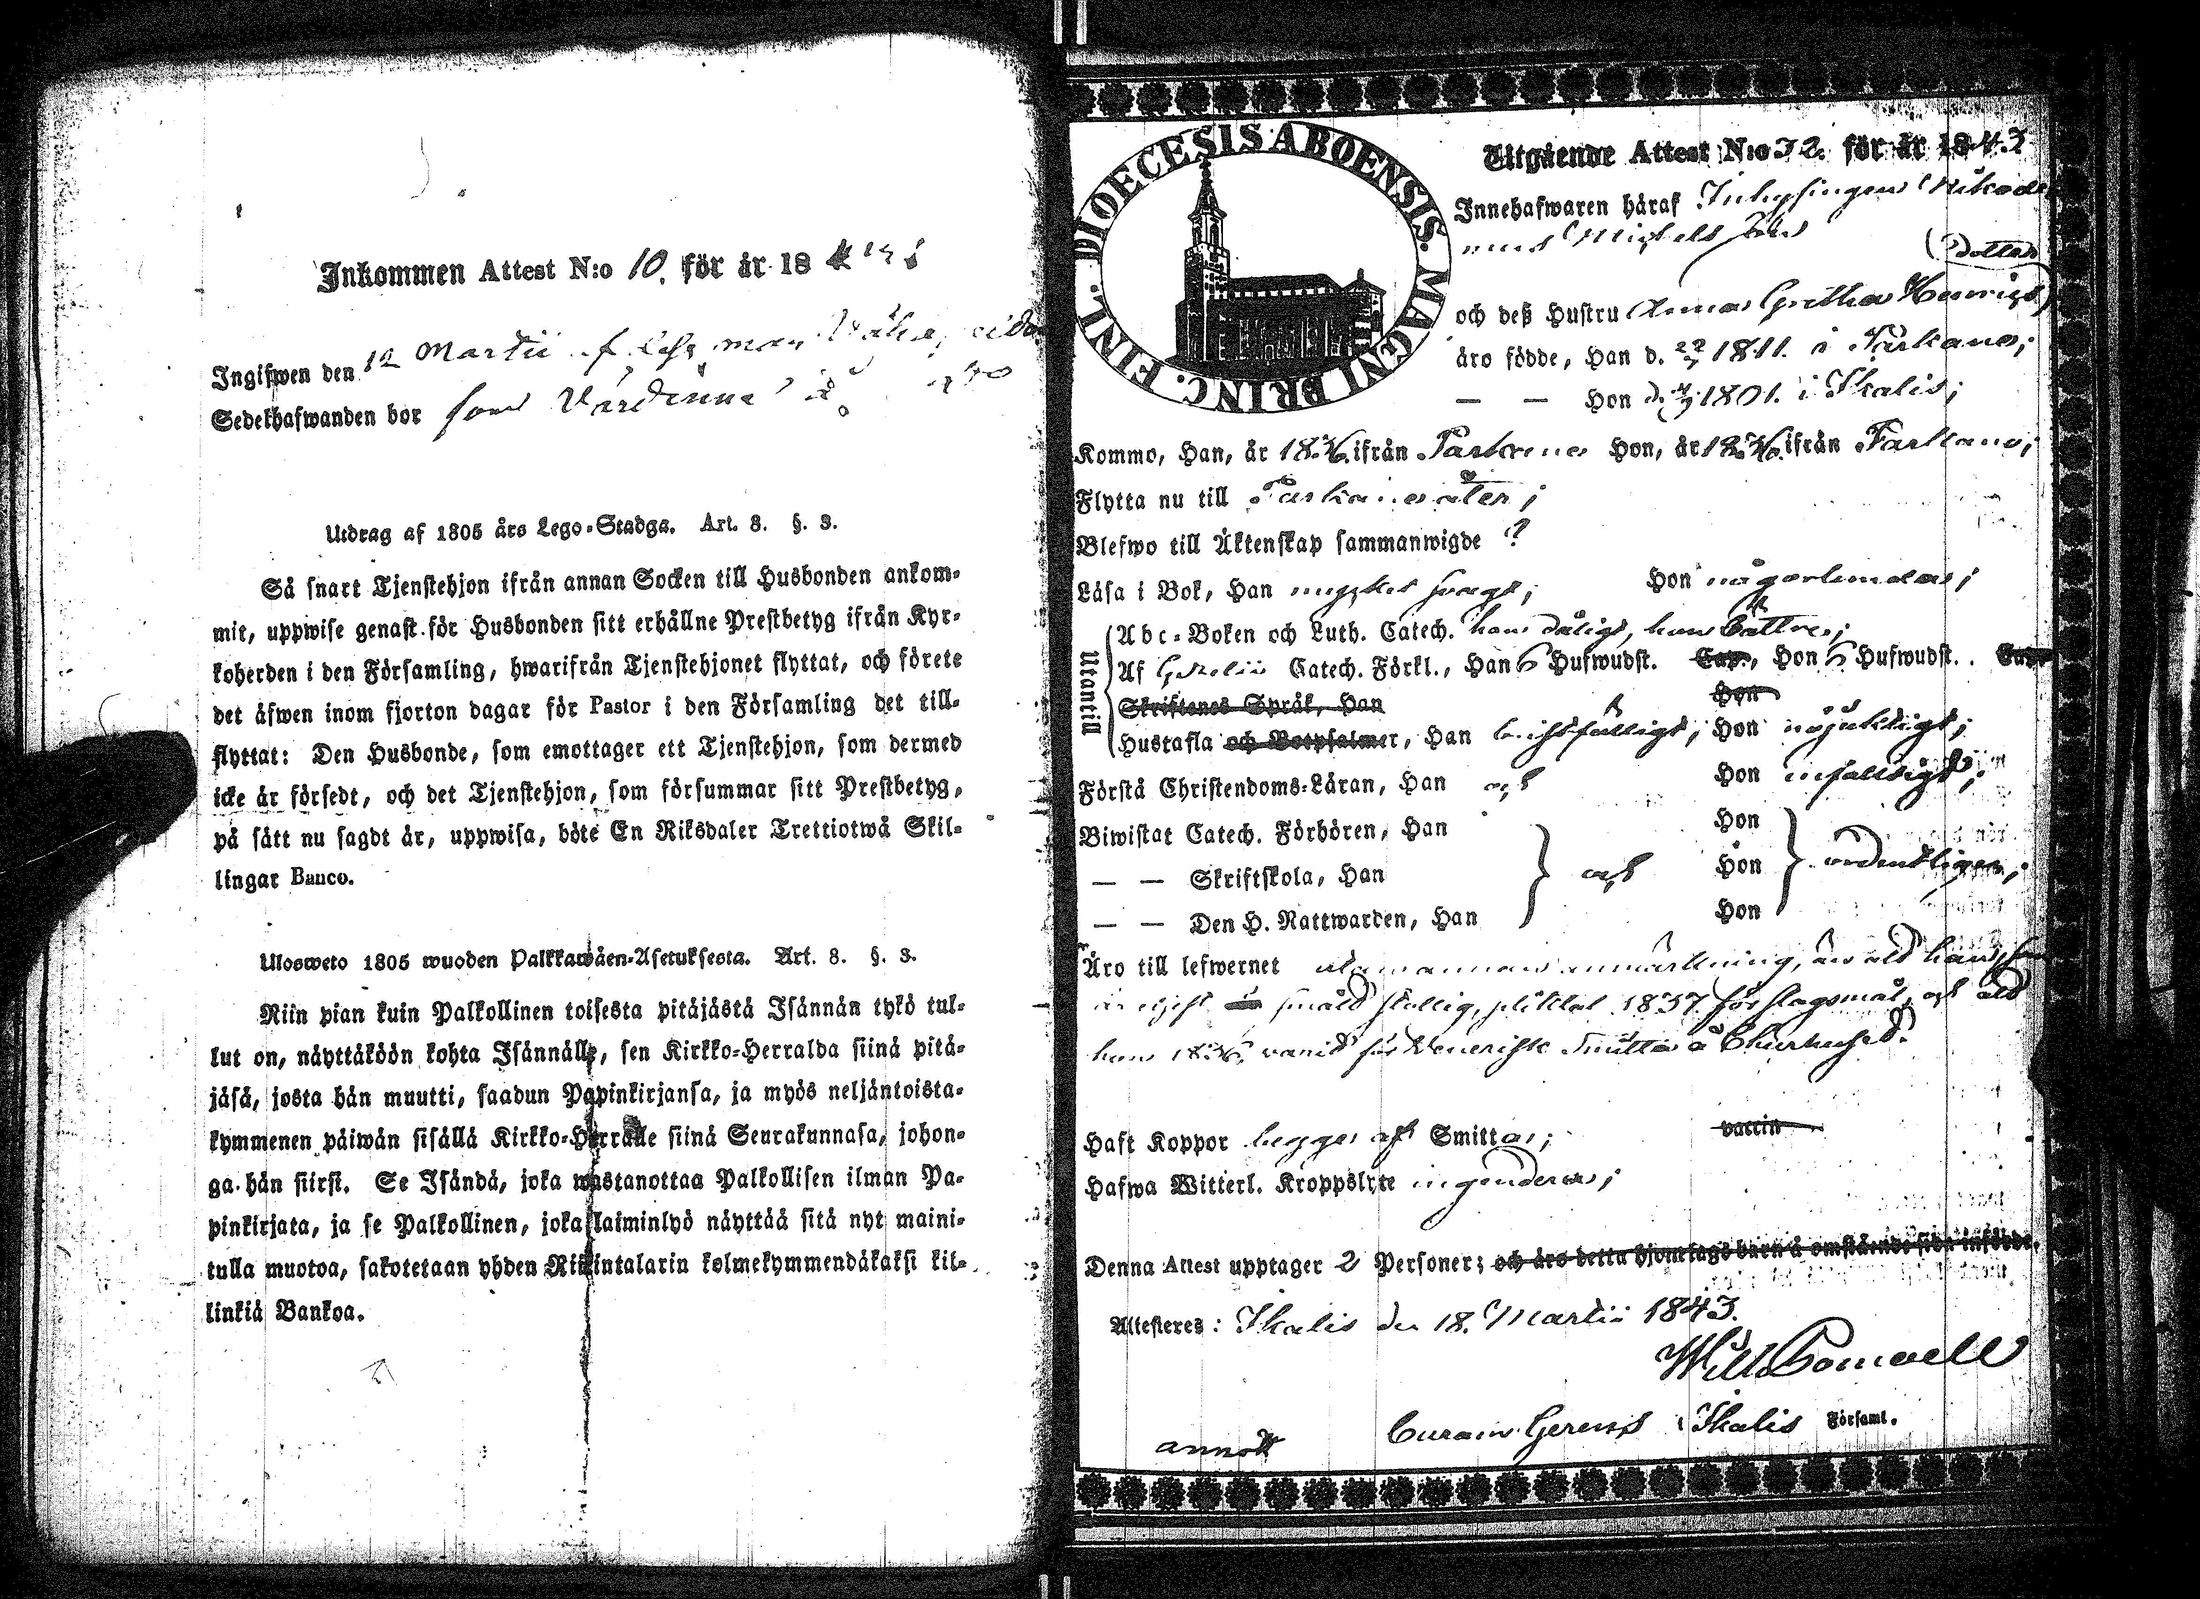 Inkommen Attest N:o 10. för år 18
Ingifwen den 12 Martii
Sedelhafwanden bor som
Utdrag af 1805 års Lego-Stadga. Art. 8. §. 3.
Så snart Tjenstehjon ifrån annan Socken till Husbonden ankom-
mit, uppwise genast för Husbonden sitt erhållne Prestbetyg ifrån Kyr-
koherden i den Församling, hwarifrån Tjenstehjonet flyttat, och förete
det äfwen inom fjorton dagar för Pastor i den Församling det till-
flyttat: Den Husbonde, som emottager ett Tjenstehjon, som dermed
icke är försedt, och det Tjenstehjon, som försummar sitt Prestbetyg,
på sätt nu sagdt är, uppwisa, böte En Riksdaler Trettiotwå Skil-
lingar Banco.
Ulosweto 1805 wuoden Palkkawäen-Asetuksesta. Art. 8. §. 3.
Niin pian kuin Palkollinen toisesta pitäjästä Isännän tykö tul-
lut on, näyttäköön kohta Isännälle, sen Kirkko-Herralda siinä pitä-
jäsä, josta hän muutti, saadun Papinkirjansa, ja myös neljäntoista-
kymmenen päiwän sisällä Kirkko-Herralle siinä Seurakunnasa, johon-
ga hän siirsi. Se Isändä, joka wastanottaa Palkollisen ilman Pa-
pinkirjata, ja se Palkollinen, joka laiminlyö näyttää sitä nyt maini-
tulla muotoa, sakotetaan yhden Riikintalarin kolmekymmendäkaksi kil-
linkiä Bankoa.
DIOECESIS ABOENSIS. MAGNI PRINC. FINL.
Utgående Attest N:o 32. för år 1843
Innehafwaren häraf Inhysingen Nikode
mus Michels Son
dotter
och deß Hustru Anna Gretha Henrics
äro födde, Han d. 1811. i Parkano;
— — Hon d. 1801. i Ikalis;
Kommo, Han, år 18 ifrån Parkano Hon, år 18 ifrån Parkano;
Flytta nu till Parkano åter;
Blefwo till Äktenskap sammanwigde ?
Läsa i Bok, Han mycket svagt; Hon någorlunda;
Utantill
Abc-Boken och Luth. Catech. han dåligt, hon bättre;
Af Catech. Förkl., Han 6 Hufwudst. Cap., Hon 6 Hufwudst. Cap.
Skriftenes Språk, Han Hon
Hustafla och Botpsalmer, Han bristfälligt; Hon nöjaktigt;
Förstå Christendoms-Läran, Han och Hon enfalldigt;
Biwistat Catech. Förhören, Han Hon
— — Skriftskola, Han och Hon ordentligen;
— — Den H. Nattwarden, Han Hon
Äro till lefwernet utan annan anmärkning, än att han,
1837 för slagsmål, och att
hon varit för Venerisk Smitta å Churhuset.
Haft Koppor begge och Smittor; vaccin
Hafwa Witterl. Kroppslyte ingendera;
Denna Attest upptager 2 Personer; och äro detta hjonelags barn å omstående sida införde.
Attesteres: Ikalis den 18. Martii 1843.
Curam Gerens i Ikalis Församl.
annott